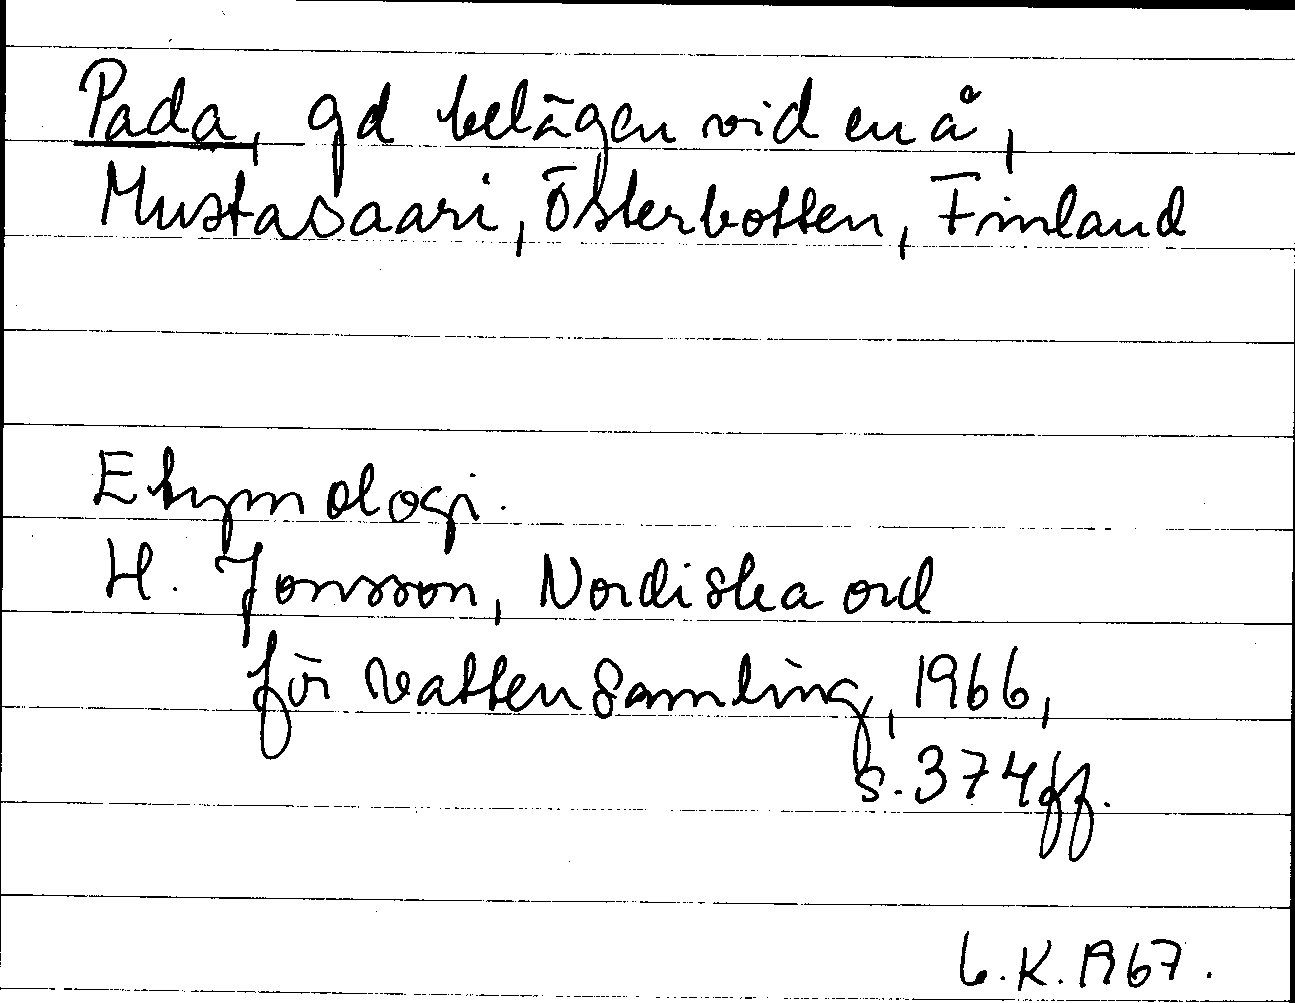 Pada, gd belägen vid en å,
Mustasaari, Österbotten, Finland
Etymologi.
H. Jonsson, Nordiska ord
för vattensamling, 1966,
s. 374 ff.
L.K. 1967.